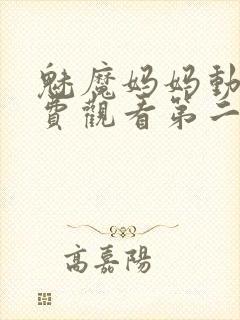 魅魔妈妈動
費觀看第二
高嘉陽